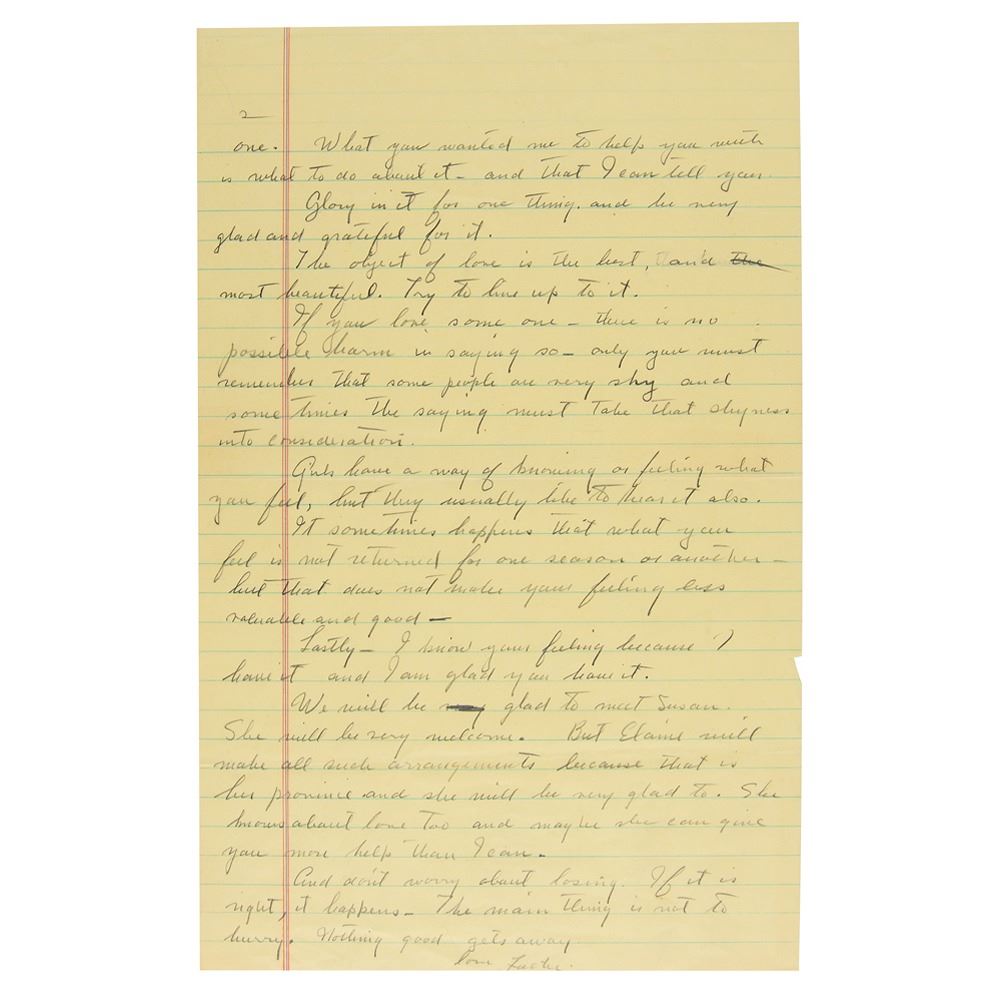 2
one. What you wanted me to help you with
is what to do about it — and that I can tell you.
Glory in it for one thing. and be very
glad and grateful for it.
The object of love is the best, and the
most beautiful. Try to live up to it.
If you love some one — there is no
possible harm in saying so — only you must
remember that some people are very shy and
some times the saying must take that shyness
into consideration.
Girls have a way of knowing or feeling what
you feel, but they usually like to hear it also.
It sometimes happens that what you
feel is not returned for one reason or another —
but that does not make your feeling less
valuable and good —
Lastly — I know your feeling because I
have it and I am glad you have it.
We will be glad to meet Susan.
She will be very welcome. But Elaine will
make all such arrangements because that is
her province and she will be very glad to. She
knows about love too and maybe she can give
you more help than I can.
And don't worry about losing. If it is
right, it happens — The main thing is not to
hurry. Nothing good gets away.
love